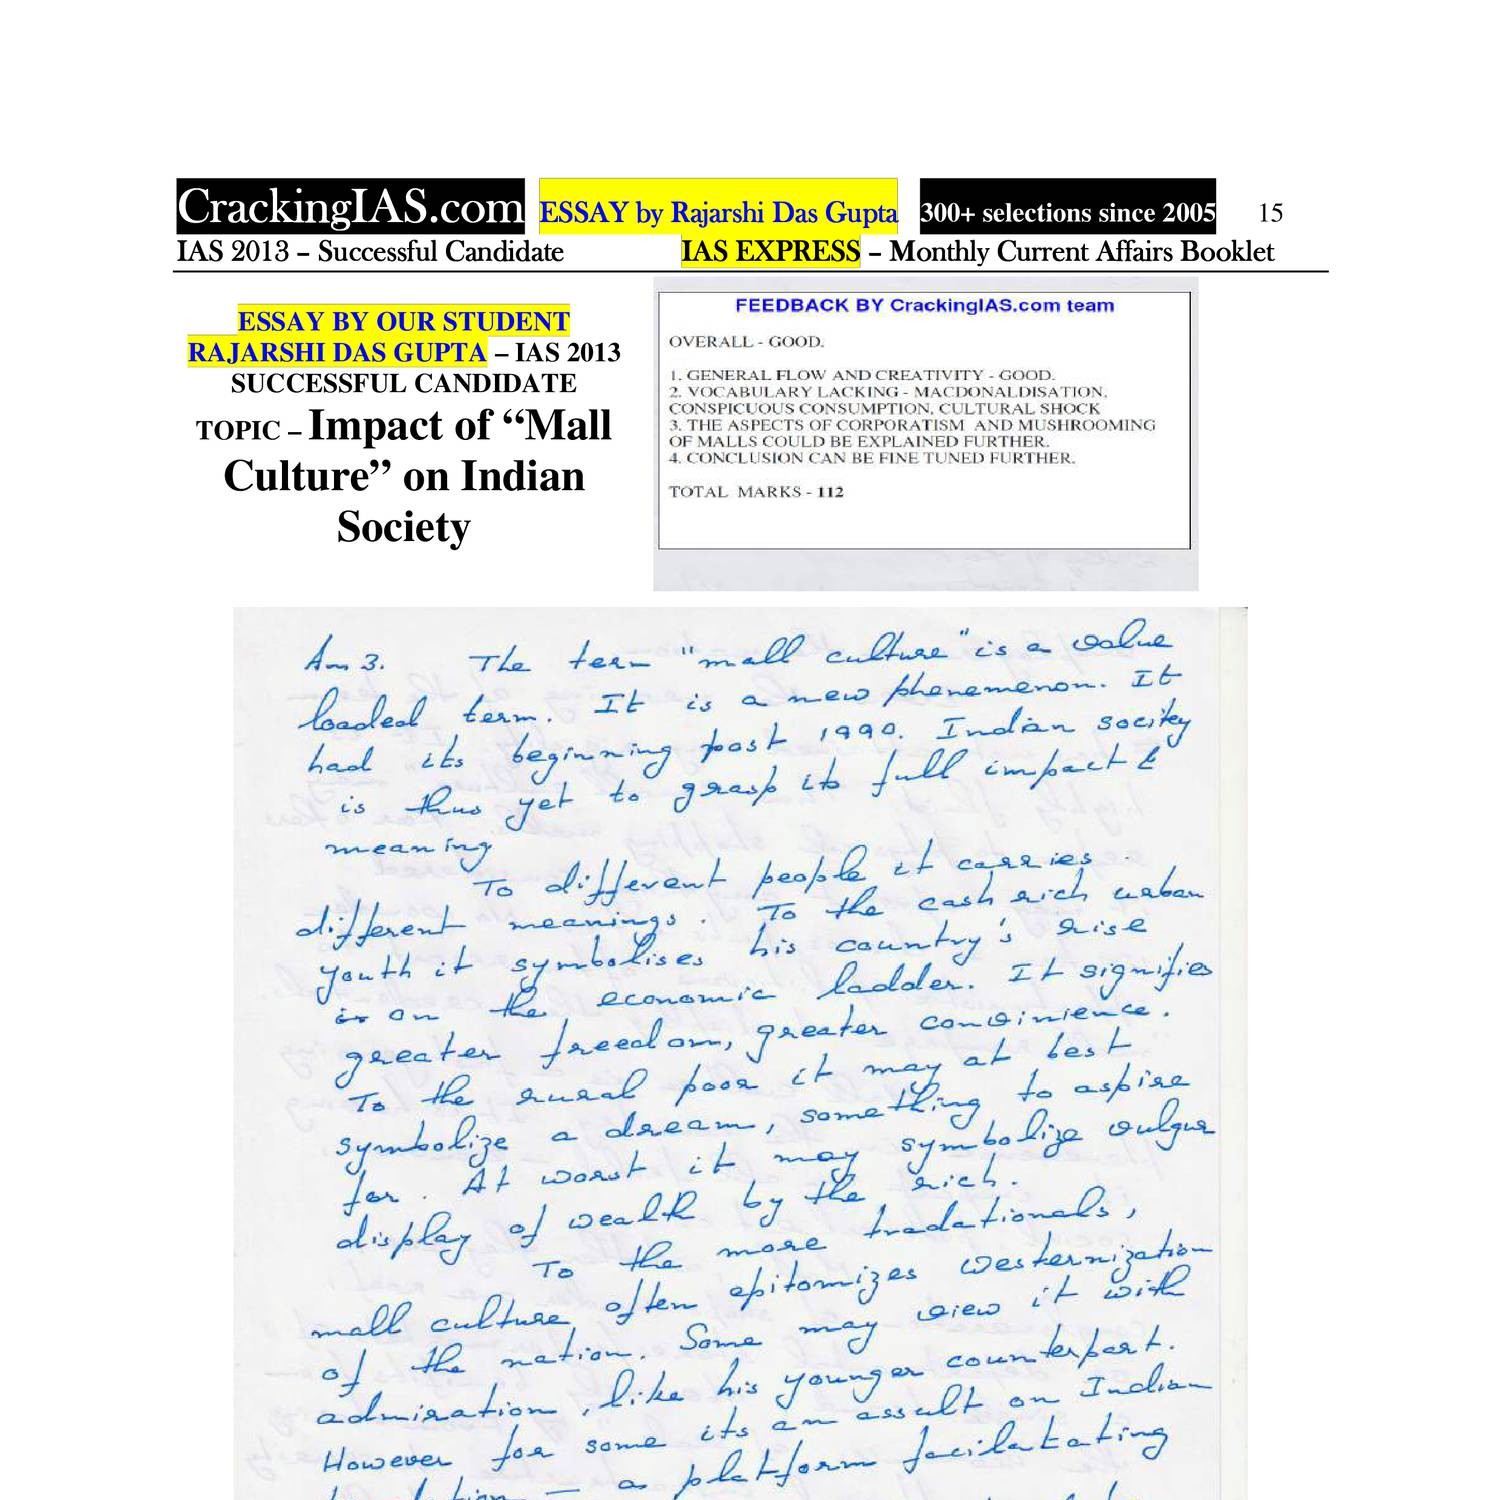 CrackingIAS.com ESSAY by Rajarshi Das Gupta 300+ selections since 2005 15
IAS 2013 – Successful Candidate IAS EXPRESS – Monthly Current Affairs Booklet
ESSAY BY OUR STUDENT
RAJARSHI DAS GUPTA – IAS 2013
SUCCESSFUL CANDIDATE
TOPIC – Impact of “Mall
Culture” on Indian
Society
FEEDBACK BY CrackingIAS.com team
OVERALL - GOOD.
1. GENERAL FLOW AND CREATIVITY - GOOD.
2. VOCABULARY LACKING - MACDONALDISATION,
CONSPICUOUS CONSUMPTION, CULTURAL SHOCK
3. THE ASPECTS OF CORPORATISM AND MUSHROOMING
OF MALLS COULD BE EXPLAINED FURTHER.
4. CONCLUSION CAN BE FINE TUNED FURTHER.
TOTAL MARKS - 112
Ans 3. The term "mall culture" is a value
loaded term. It is a new phenemenon. It
had its beginning post 1990. Indian socitey
is thus yet to grasp its full impact &
meaning
To different people it carries
different meanings. To the cash rich urban
youth it symbolises his country's rise
on the economic ladder. It signifies
greater freedom, greater convinience.
To the rural poor it may at best
symbolize a dream, something to aspire
for. At worst it may symbolize vulgur
display of wealth by the rich.
To the more tradationals,
mall culture often epitomizes westernization
of the nation. Some may view it with
admiration, like his younger counterpart.
However for some its an assult on Indian
— a platform facilatating